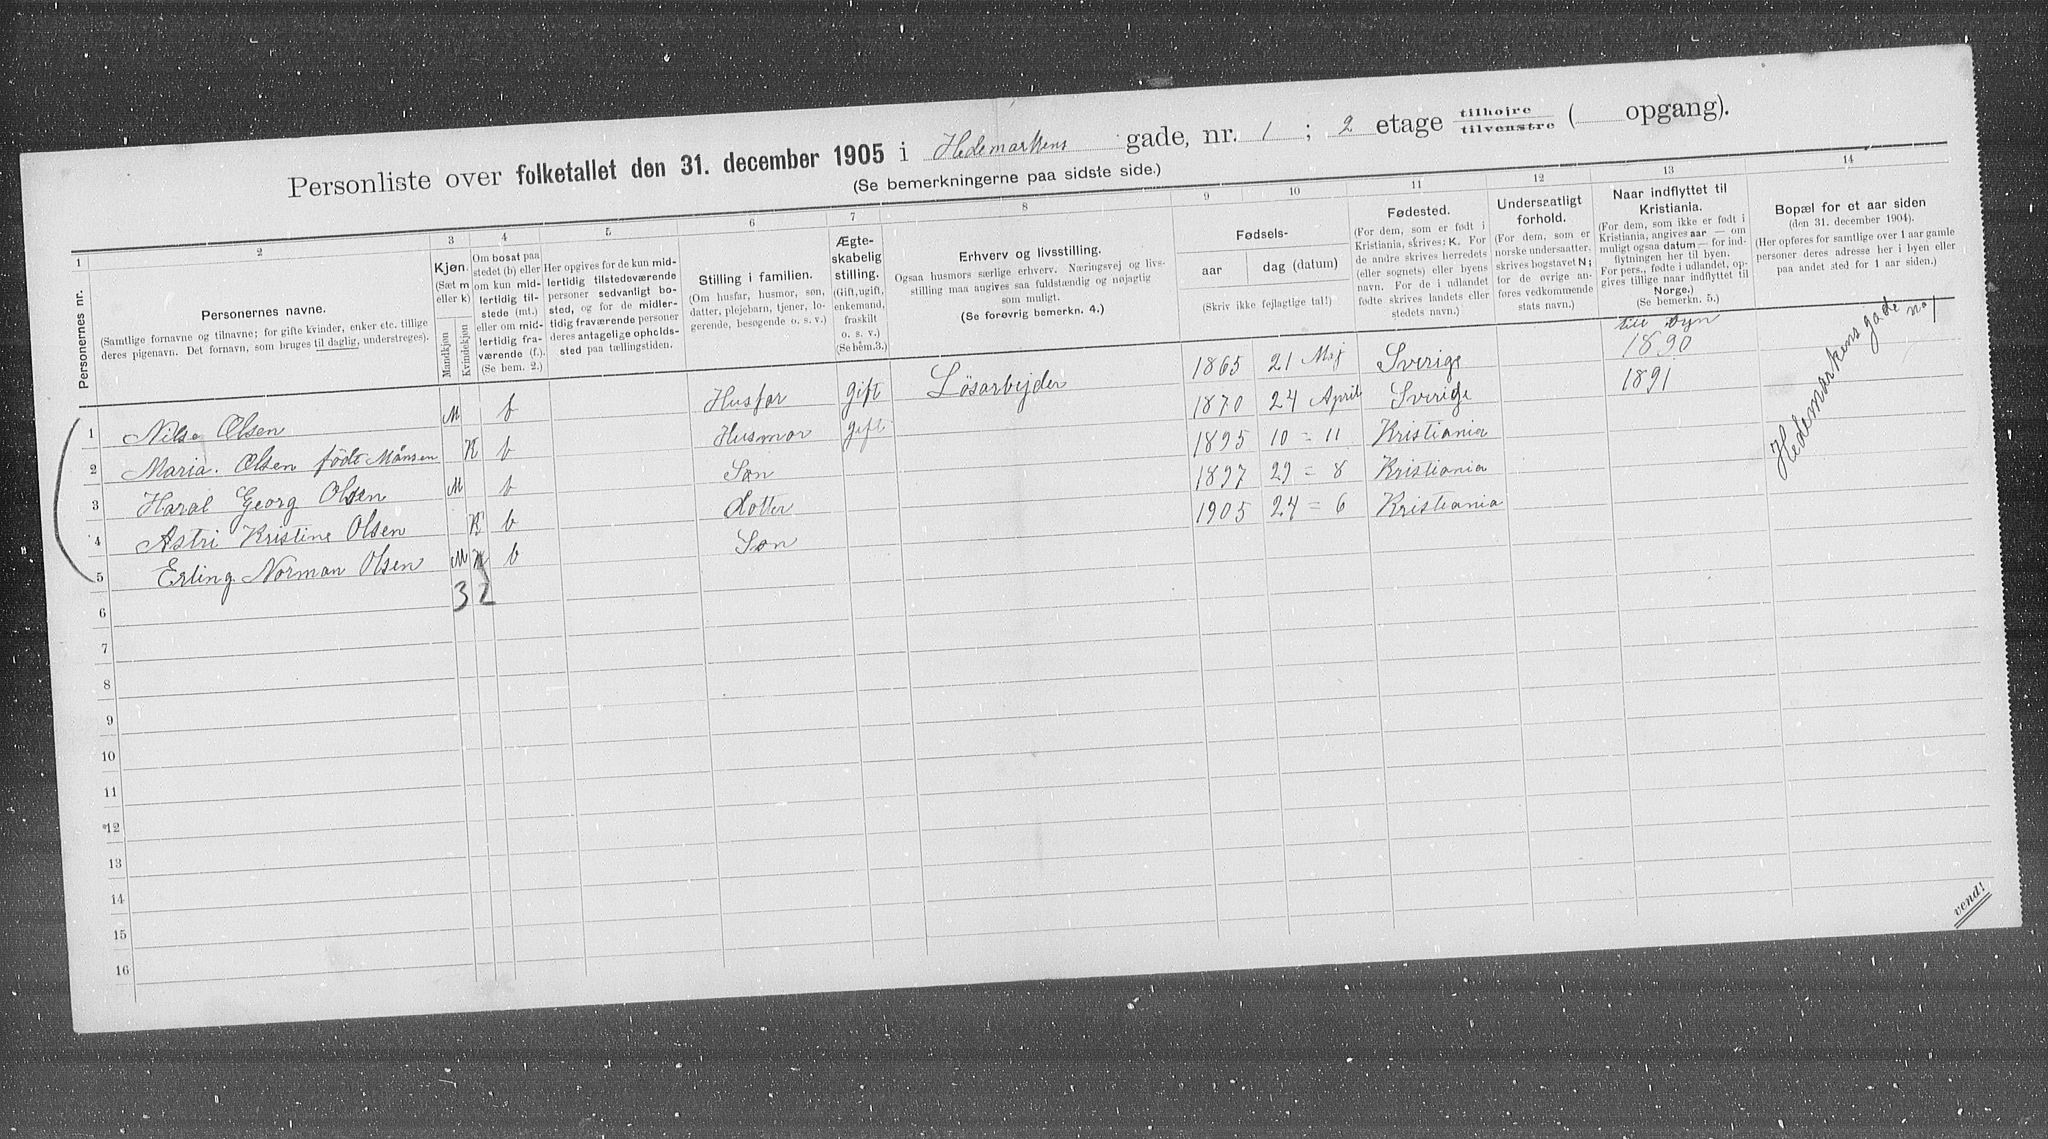 Personliste over folketallet den 31. december 1905 i Hedemarkens gade, nr. 1 ; 2 etage tilhøjre tilvenstre ( opgang).
(Se bemerkningerne paa sidste side.)
1 2 3 4 5 6 7 8 9 10 11 12 13 14
Personernes nr.
Personernes navne.
(Samtlige fornavne og tilnavne; for gifte kvinder, enker etc. tillige
deres pigenavn. Det fornavn, som bruges til daglig, understreges).
Kjøn.
(Sæt m
eller k)
Mandkjøn
Kvindekjøn
Om bosat paa
stedet (b) eller
om kun mid-
lertidig til-
stede (mt.)
eller om mid-
lertidig fra-
værende (f.).
(Se bem. 2.)
Her opgives for de kun mid-
lertidig tilstedeværende
personer sedvanligt bo-
sted, og for de midler-
tidig fraværende personer
deres antagelige opholds-
sted paa tællingstiden.
Stilling i familien.
(Om husfar, husmor, søn,
datter, plejebarn, tjener, lo-
gerende, besøgende o. s. v.)
Ægte-
skabelig
stilling.
(Gift, ugift,
enkemand,
fraskilt
o. s. v.)
(Se bem.3.)
Erhverv og livsstilling.
Ogsaa husmors særlige erhverv. Næringsvej og livs-
stilling maa angives saa fuldstændig og nøjagtig
som muligt.
(Se forøvrig bemerkn. 4.)
Fødsels-
aar
dag (datum)
(Skriv ikke fejlagtige tal!)
Fødested.
(For dem, som er født i
Kristiania, skrives: K. For
de andre skrives herredets
(eller sognets) eller byens
navn. For de i udlandet
fødte skrives landets eller
stedets navn.)
Undersaatligt
forhold.
(For dem, som er
norske undersaatter,
skrives bogstavet N;
for de øvrige an-
føres vedkommende
stats navn.)
Naar indflyttet til
Kristiania.
(For dem, som ikke er født i
Kristiania, angives aar — om
muligt ogsaa datum — for ind-
flytningen her til byen.
For pers., fødte i udlandet, op-
gives tillige naar indflyttet til
Norge.)
(Se bemerkn. 5.)
Bopæl for et aar siden
(den 31. december 1904).
(Her opføres for samtlige over 1 aar gamle
personer deres adresse her i byen eller
paa andet sted for 1 aar siden.)
till Byn
1 Nils Olsen M b Husfar gift Lösarbejder 1865 21 Maj Sverige 1890
2 Maria. Olsen født Månsen K b Husmor gift 1870 24 April Sverige 1891
3 Haral Georg Olsen M b Søn 1895 10 = 11 Kristiania
4 Astri Kristine Olsen K b Dotter 1897 29 = 8 Kristiania
5 Erling Norman Olsen M b Søn 1905 24 = 6 Kristiania
Hedemarkens gade no 1
6 3 2
7
8
9
10
11
12
13
14
15
16
vend!